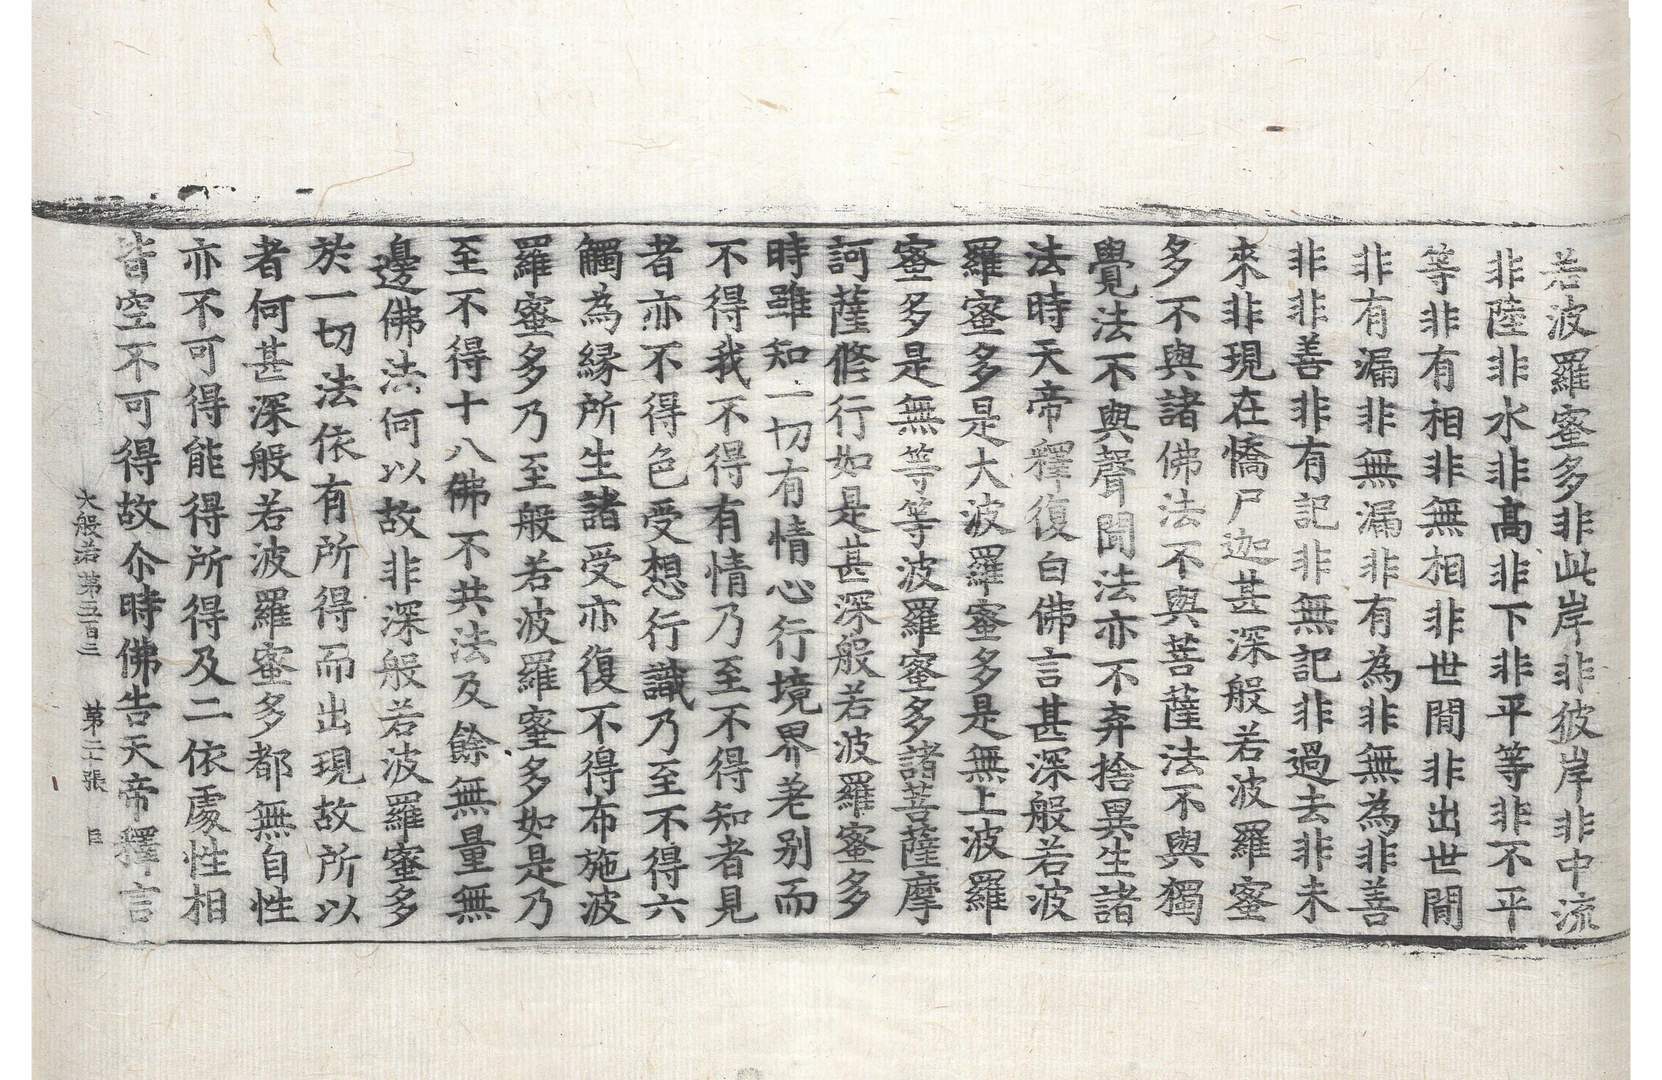 若波羅蜜多非此岸非彼岸非中流
非陸非水非髙非下非平等非不平
等非有相非無相非世間非出世間
非有漏非無漏非有為非無為非善
非非善非有記非無記非過去非未
來非現在憍尸迦甚深般若波羅蜜
多不與諸佛法不與菩薩法不與獨
覺法不與聲聞法亦不弃捨異生諸
法時天帝釋復白佛言甚深般若波
羅蜜多是大波羅蜜多是無上波羅
蜜多是無等等波羅蜜多諸菩薩摩
訶薩修行如是甚深般若波羅蜜多
時雖知一切有情心行境界差別而
不得我不得有情乃至不得知者見
者亦不得色受想行識乃至不得六
觸為縁所生諸受亦復不得布施波
羅蜜多乃至般若波羅蜜多如是乃
至不得十八佛不共法及餘無量無
邊佛法何以故非深般若波羅蜜多
於一切法依有所得而出現故所以
者何甚深般若波羅蜜多都無自性
亦不可得能得所得及二依處性相
皆空不可得故尒時佛告天帝釋言
大般若第五百三 第二十張